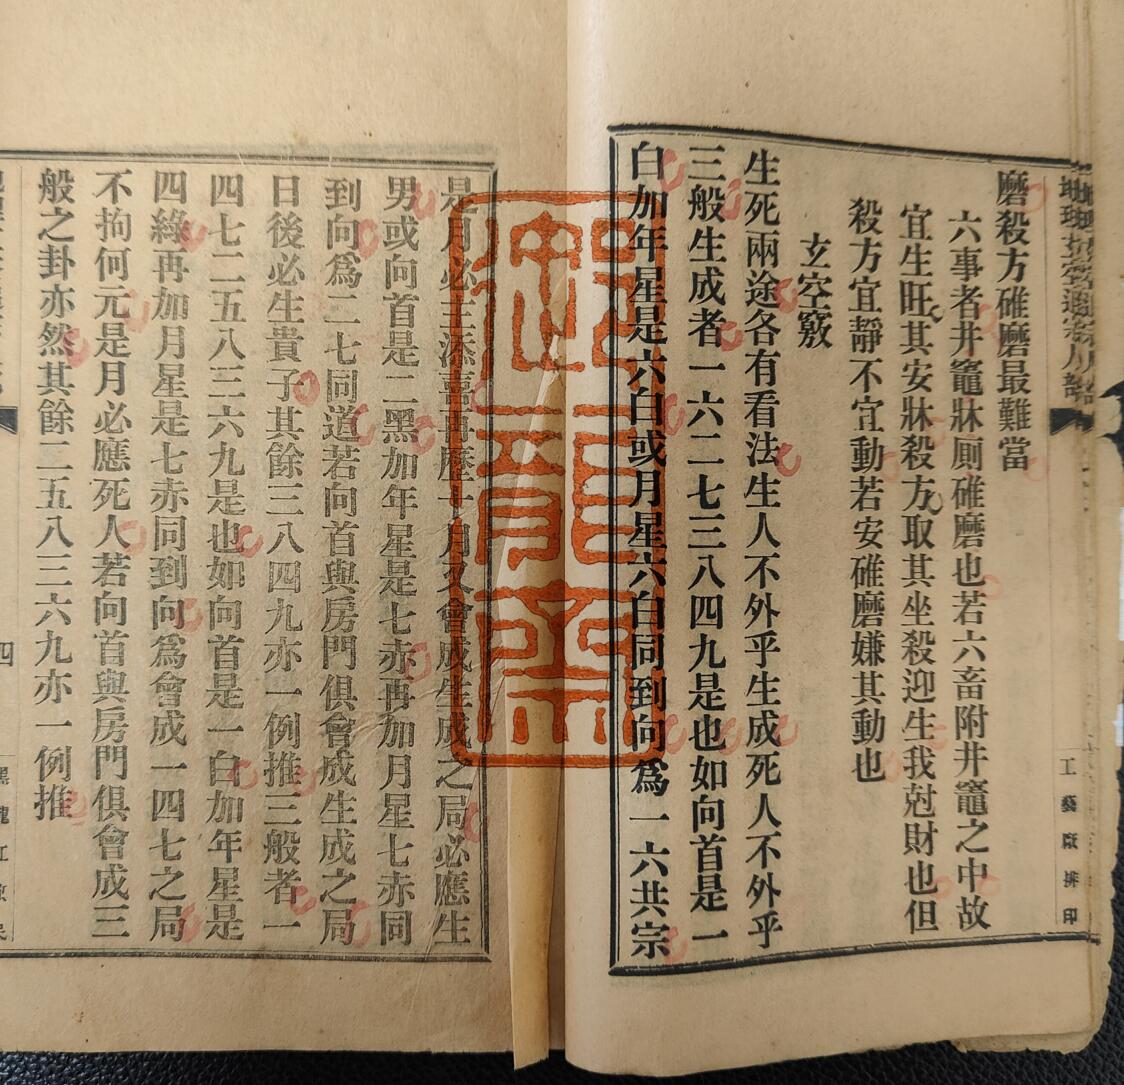 磨殺方碓磨最難當
六事者井竈牀厠碓磨也若六畜附井竈之中故
宜生旺其安牀殺方取其坐殺迎生我尅財也但
殺方宜靜不宜動若安碓磨嫌其動也
玄空竅
生死兩途各有看法生人不外乎生成死人不外乎
三般生成者一六二七三八四九是也如向首是一
白加年星是六白或月星六白同到向爲一六共宗
是月必主添喜再歷十月又會成生成之局必應生
男或向首是二黑加年星是七赤再加月星七赤同
到向爲二七同道若向首與房門俱會成生成之局
日後必生貴子其餘三八四九亦一例推三般者一
四七二五八三六九是也如向首是一白加年星是
四綠再加月星是七赤同到向爲會成一四七之局
不拘何元是月必應死人若向首與房門俱會成三
般之卦亦然其餘二五八三六九亦一例推
工藝廠排印
四